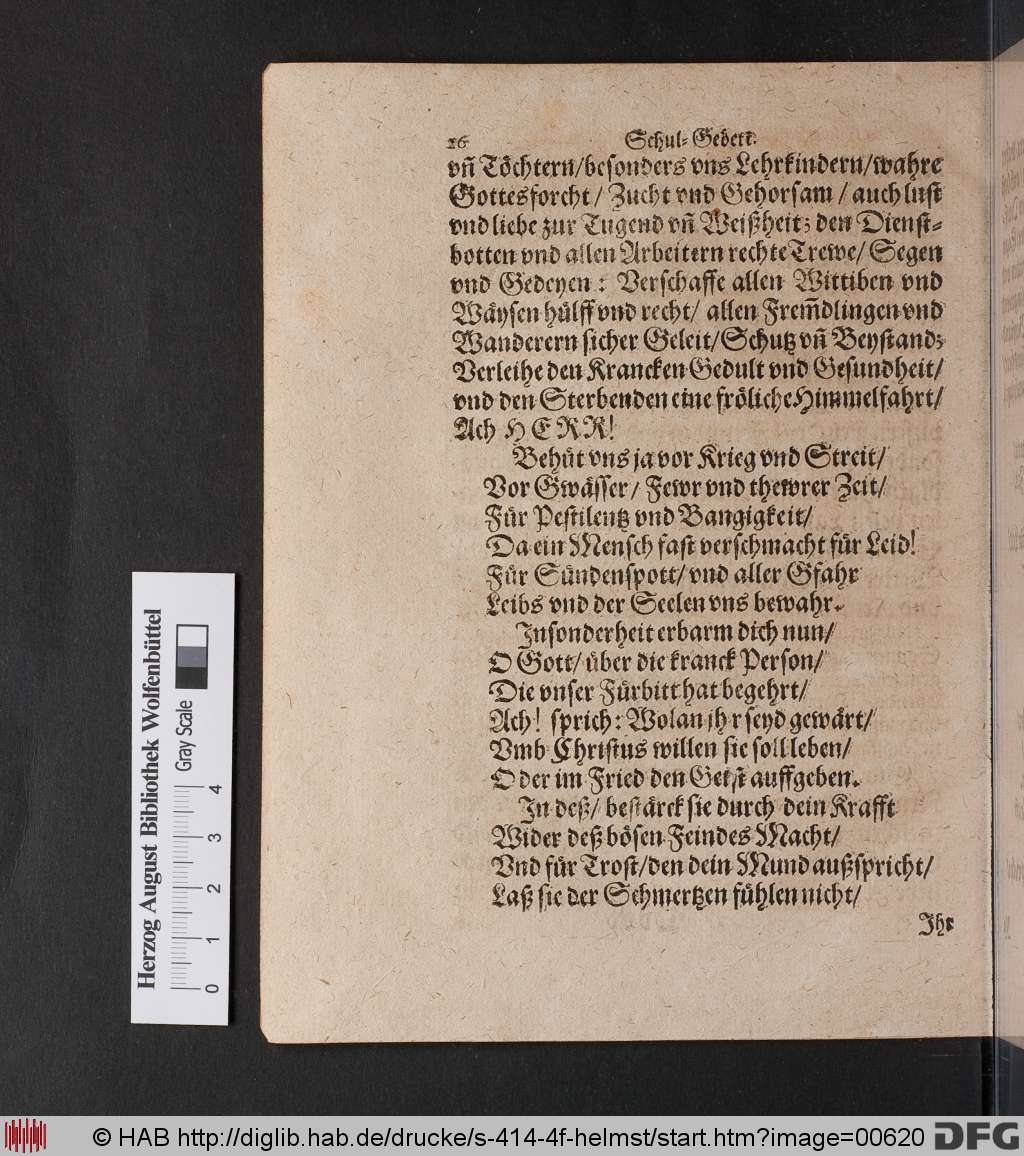 26 Schul-Gebett.
vñ Töchtern/besonders vns Lehrkindern/wahre
Gottesforcht/ Zucht vnd Gehorsam/ auch lust
vnd liebe zur Tugend vñ Weißheit; den Dienst-
botten vnd allen Arbeitern rechte Trewe/ Segen
vnd Gedeyen: Verschaffe allen Wittiben vnd
Wäysen hülff vnd recht/ allen Frem̃dlingen vnd
Wanderern sicher Geleit/Schutz vñ Beystand;
Verleihe den Krancken Gedult vnd Gesundheit/
vnd den Sterbenden eine fröliche Himmelfahrt/
Ach HERR!
Behüt vns ja vor Krieg vnd Streit/
Vor Gwässer/ Fewr vnd thewrer Zeit/
Für Pestilentz vnd Bangigkeit/
Da ein Mensch fast verschmacht für Leid!
Für Sündenspott/ vnd aller Gfahr
Leibs vnd der Seelen vns bewahr.
Insonderheit erbarm dich nun/
O Gott/ über die kranck Person/
Die vnser Fürbitt hat begehrt/
Ach! sprich: Wolan jhr seyd gewärt/
Vmb Christus willen sie soll leben/
Oder im Fried den Geist auffgeben.
In deß/ bestärck sie durch dein Krafft
Wider deß bösen Feindes Macht/
Vnd für Trost/den dein Mund außspricht/
Laß sie der Schmertzen fühlen nicht/
Ihr
Herzog August Bibliothek Wolfenbüttel
Gray Scale
0 1 2 3 4
© HAB http://diglib.hab.de/drucke/s-414-4f-helmst/start.htm?image=00620 DFG